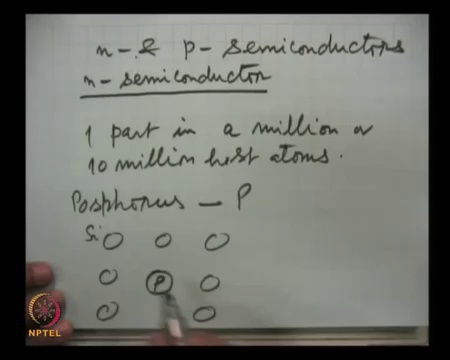 n- & p- semiconductors
n- semiconductor
1 part in a million or
10 million host atoms.
Posphorus - P
Si
P
NPTEL